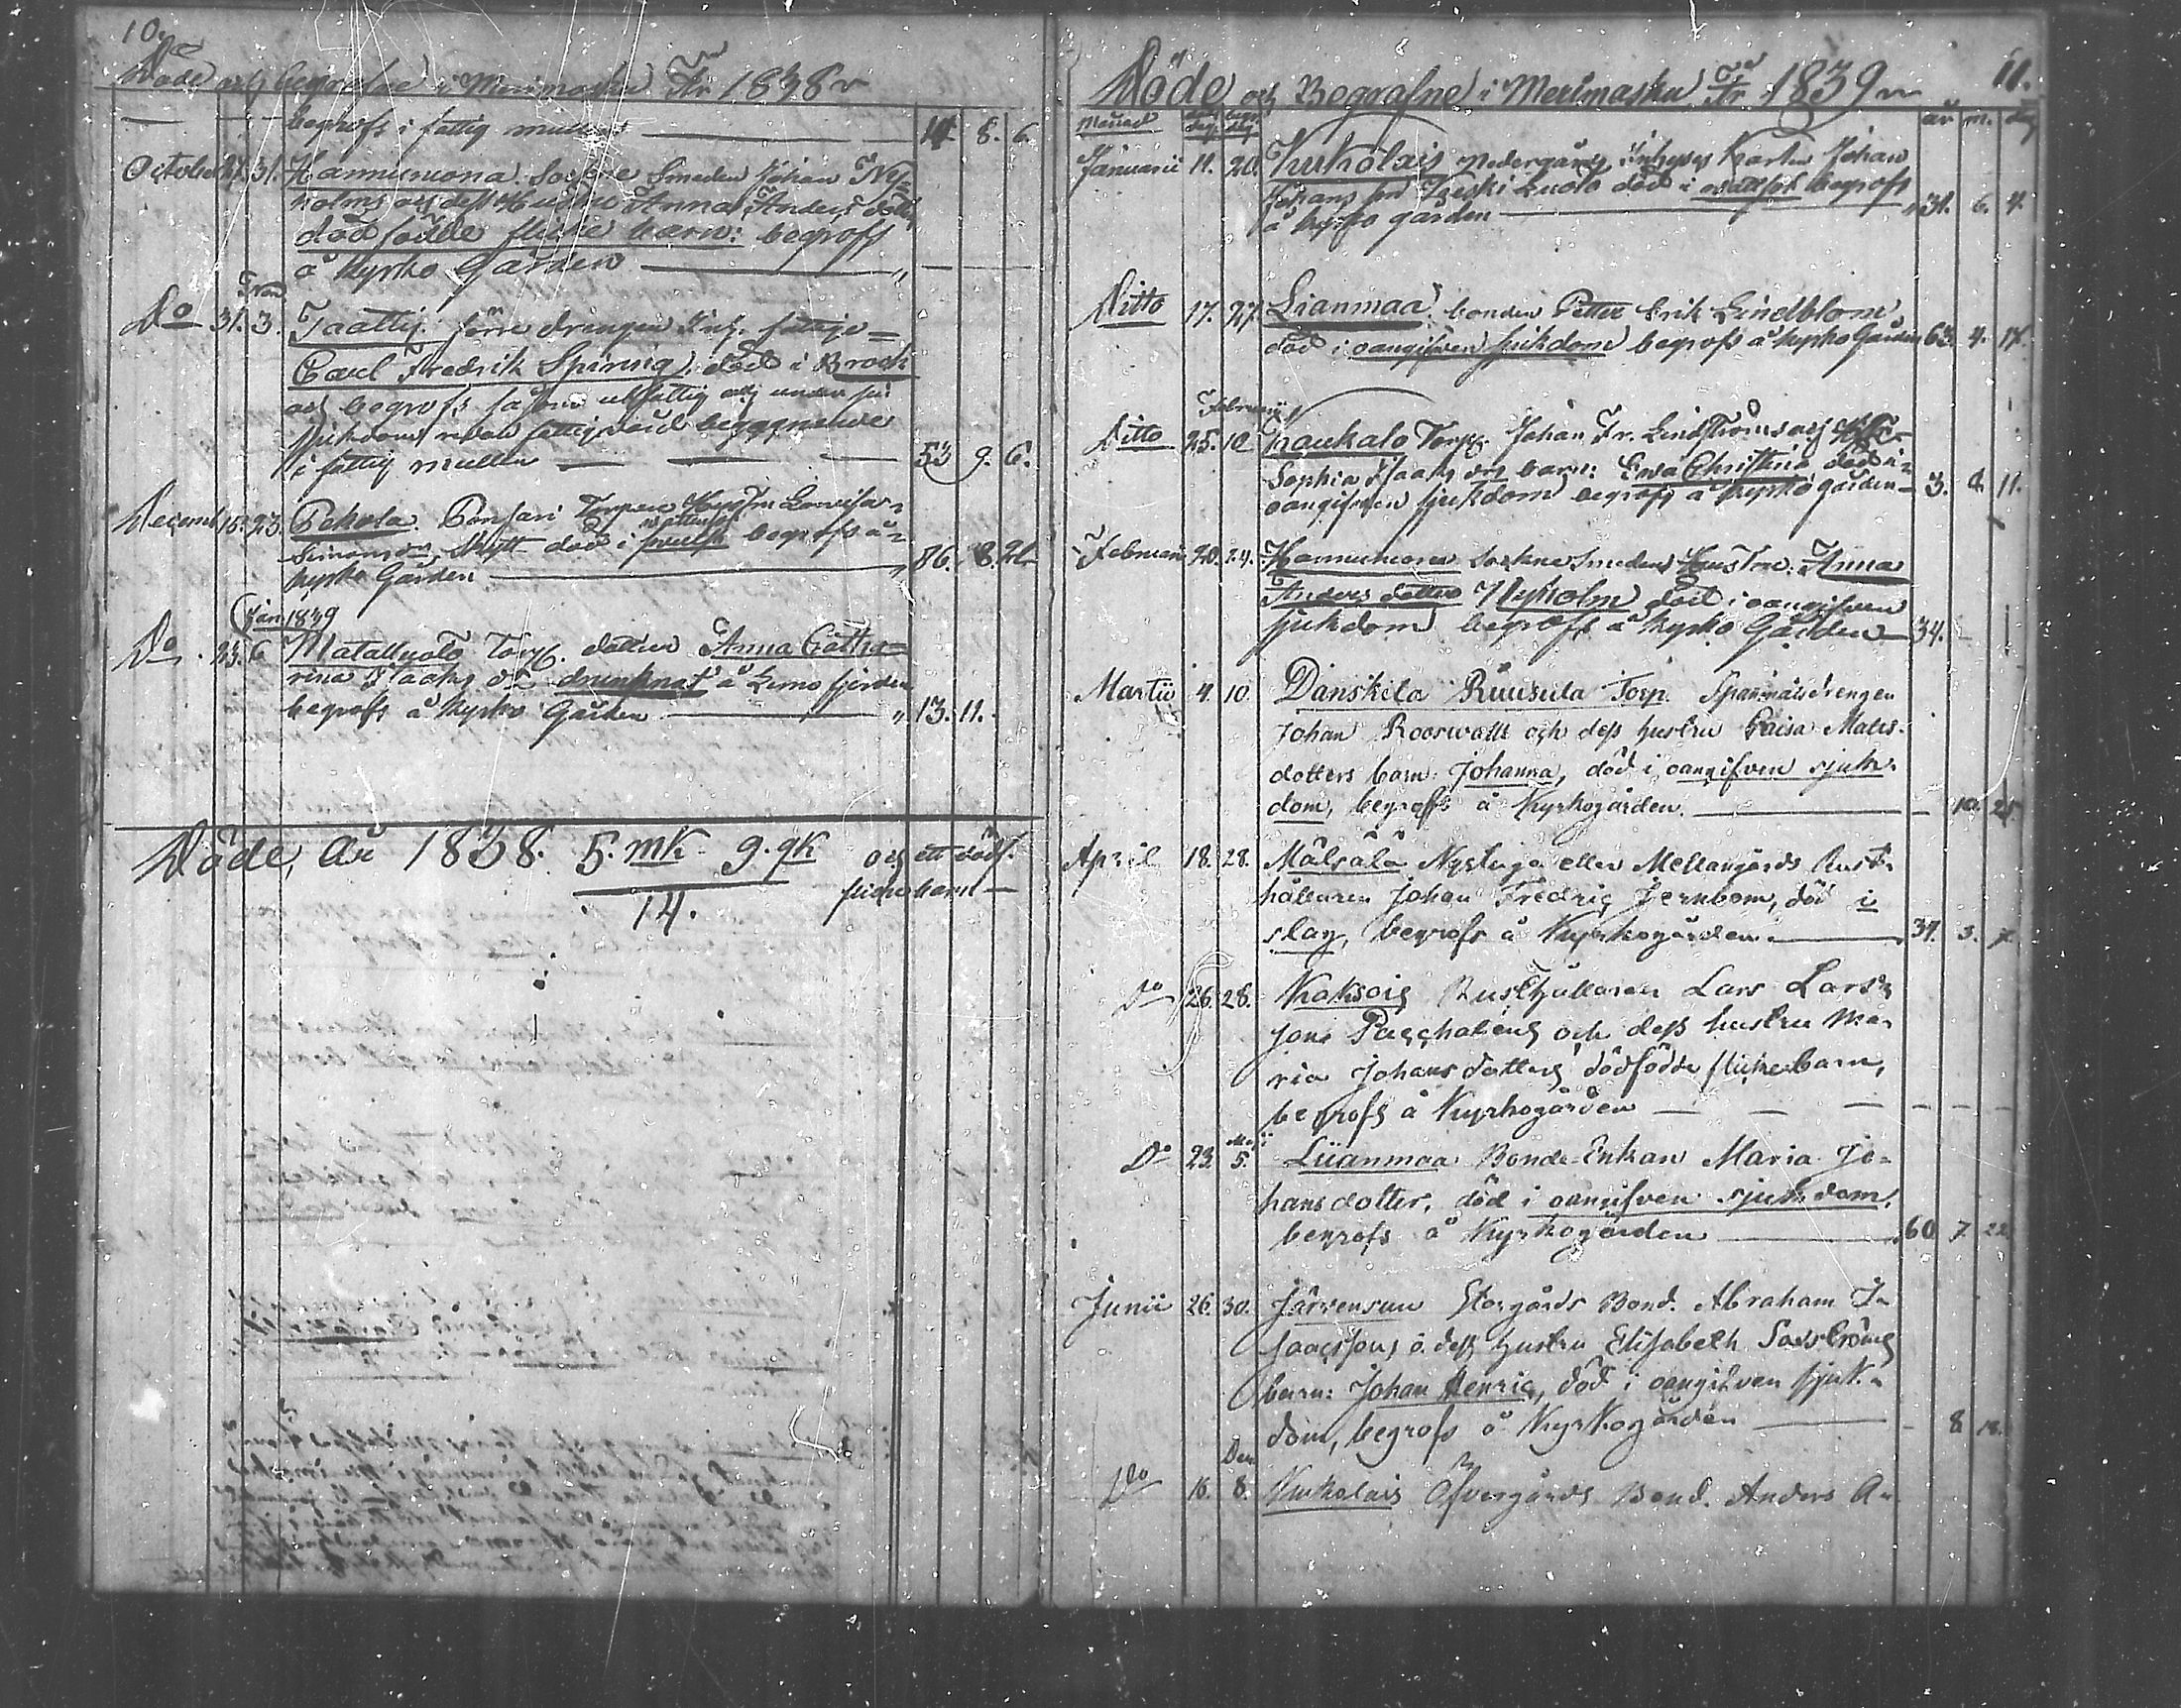 10.
Döde och begrafne i Merimasku År 1838
begrofs i fattig mullen — 14. 8. 6.
October 27. 31. Hannumona Sockne Smeden Johan Ny=
holms och dess Hustru Anna Anders dotters
död födde flicke barn: begrofs
å Kyrko Gården —
Do 31. 3. Taattij. förre drengen Inh. fattige=
Carl Fredrik Spiring, död i Bråck
och begrofs såsom utfattig och under sin
sjukdom redan fattigvård begagnande
i fattig mullen — 53 9. 6.
Decemb 15. 23. Pekola Torpare Lovisa
Simonsdr. död i begrofs å=
Kyrko Gården — 86. 8. 21.
Jan: 1839
Do. 23. 6 Matalluoto Torp. dotter Anna Catha=
rina Isaaks dr drunknat å Lemo fjerden
begrofs å Kyrko Gården — 13. 11.
Döde, År 1838. 5. mk 9. qk och ett dödf.
14. flickebarn —
11.
Döde och Begrafne i Merimasku År 1839
Månad död. dag. begr. dag. år m. dag
Januarii 11. 20. Kukolais Nedergårds Inhyses Karlen Johan
Johans son död i wattsot begrofs
å Kyrko gården — 31. 6. 4.
Ditto 17. 27. Lianmaa bonden Petter Erik Lindblom,
död i oangifven sjukdom begrofs å Kyrko Gården 63. 4. 17.
Februarii
Ditto 25. 10 Kaukalo Torp. Johan Fr. Lindströms och
Sophia Isaaks drs barn: Eva Christina död i=
oangifven sjukdom begrofs å Kyrko gården — 3. 8. 11.
Februarii 20. 24. Hannumona Sockne Smedens Hustru: Anna
Anders dotter Nyholm död i oangifven
sjukdom begrofs å Kyrko Gården — 34.
Martii 4. 10. Danskila Ruusula Torp. Spanmålsdrengen
Johan Rooswalls och dess hustru Caisa Mats-
dotters barn: Johanna, död i oangifven sjuk-
dom, begrofs å Kyrkogården. — 10. 25.
April 18. 28. Målsala Nystuga eller Mellangårds Rust-
hållaren Johan Fredric Jernbom, död i
slag, begrofs å Kyrkogården. — 37. 3. 7.
Do 26. 28. Kaksois Rusthållaren Lars Lars-
sons Paschalins och dess hustru Ma-
ria Johansdotters dödfödde flickebarn,
begrofs å Kyrkogården — — — — —
Maji
Do 23. 5. Liianmaa Bonde-Enkan Maria Jo-
hansdotter, död i oangifven sjukdom,
begrofs å Kyrkogården — 60 7 22
Junii 26. 30. Järvensuu Storgårds Bond. Abraham I-
saacssons o. dess hustru Elisabeth Sadströms
barn: Johan Henric, död i oangifven sjuk-
dom, begrofs å Kyrkogården — 8 18.
Do 16. 8. Kukolais Öfvergårds Bond. Anders A-